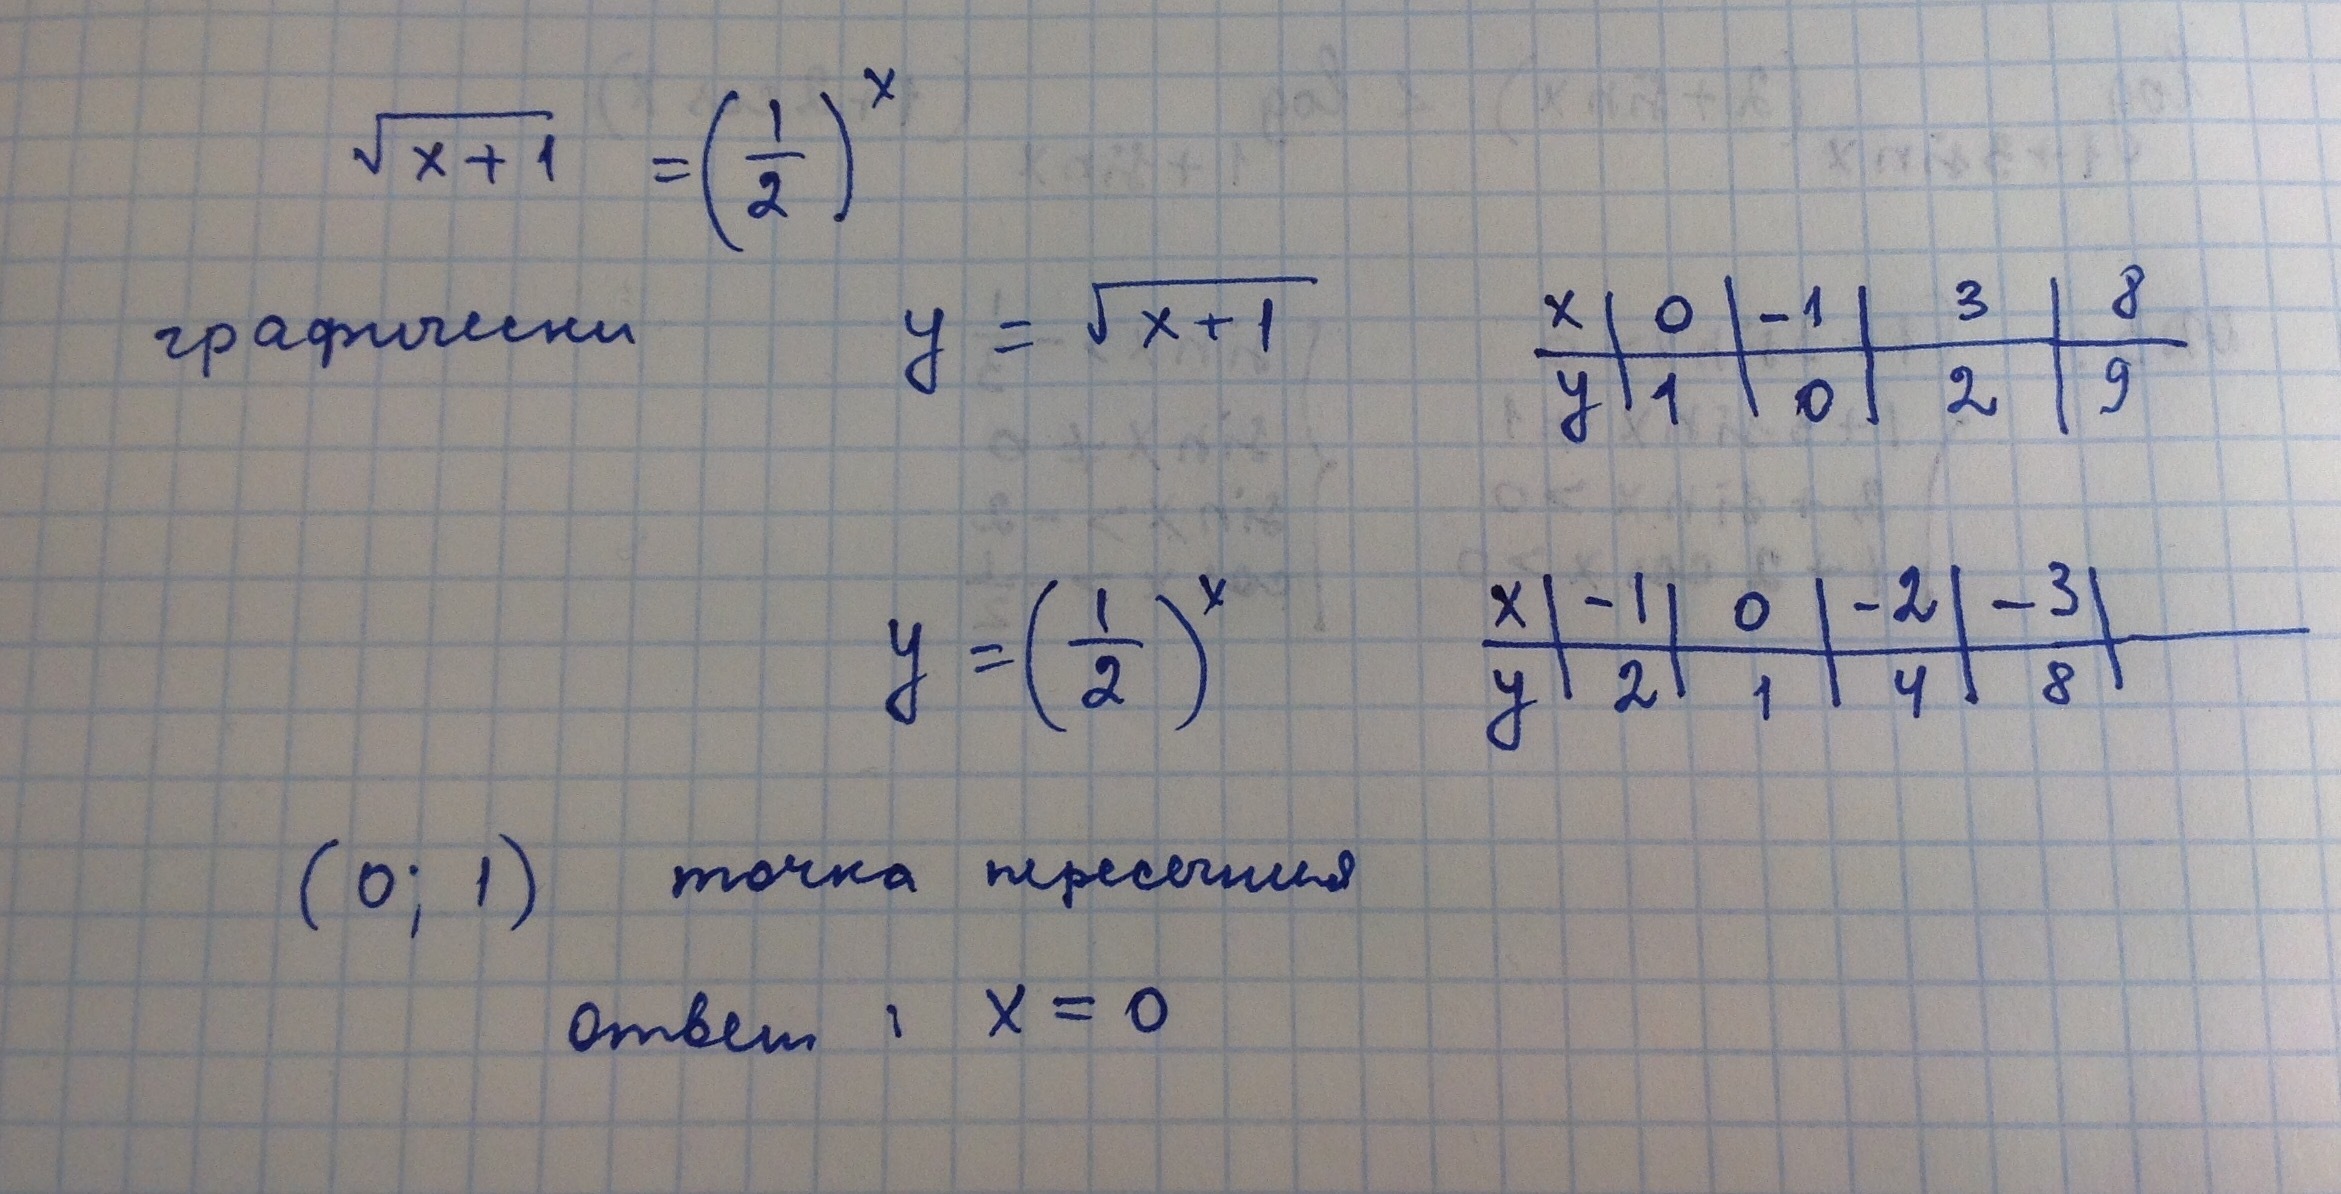 √x+1 = (1/2)^x
графически y = √x+1
x | 0 | -1 | 3 | 8
y | 1 | 0 | 2 | 9
y = (1/2)^x
x | -1 | 0 | -2 | -3 |
y | 2 | 1 | 4 | 8 |
(0; 1) точка пересечения
ответ : x = 0